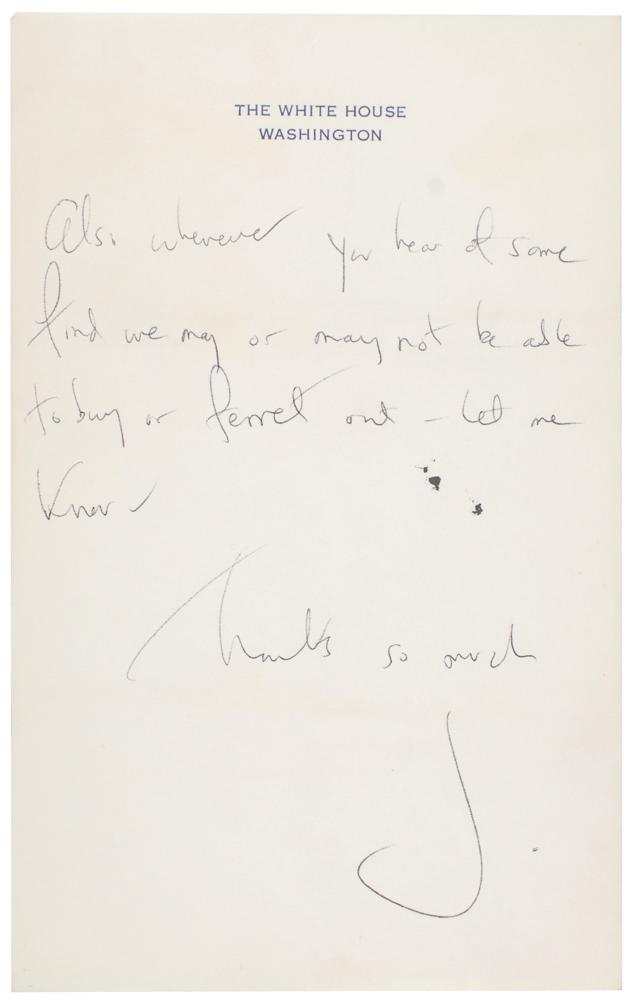 THE WHITE HOUSE
WASHINGTON
Also whenever you hear of some
find we may or may not be able
to buy or ferret out – let me
know
Thanks so much
J.